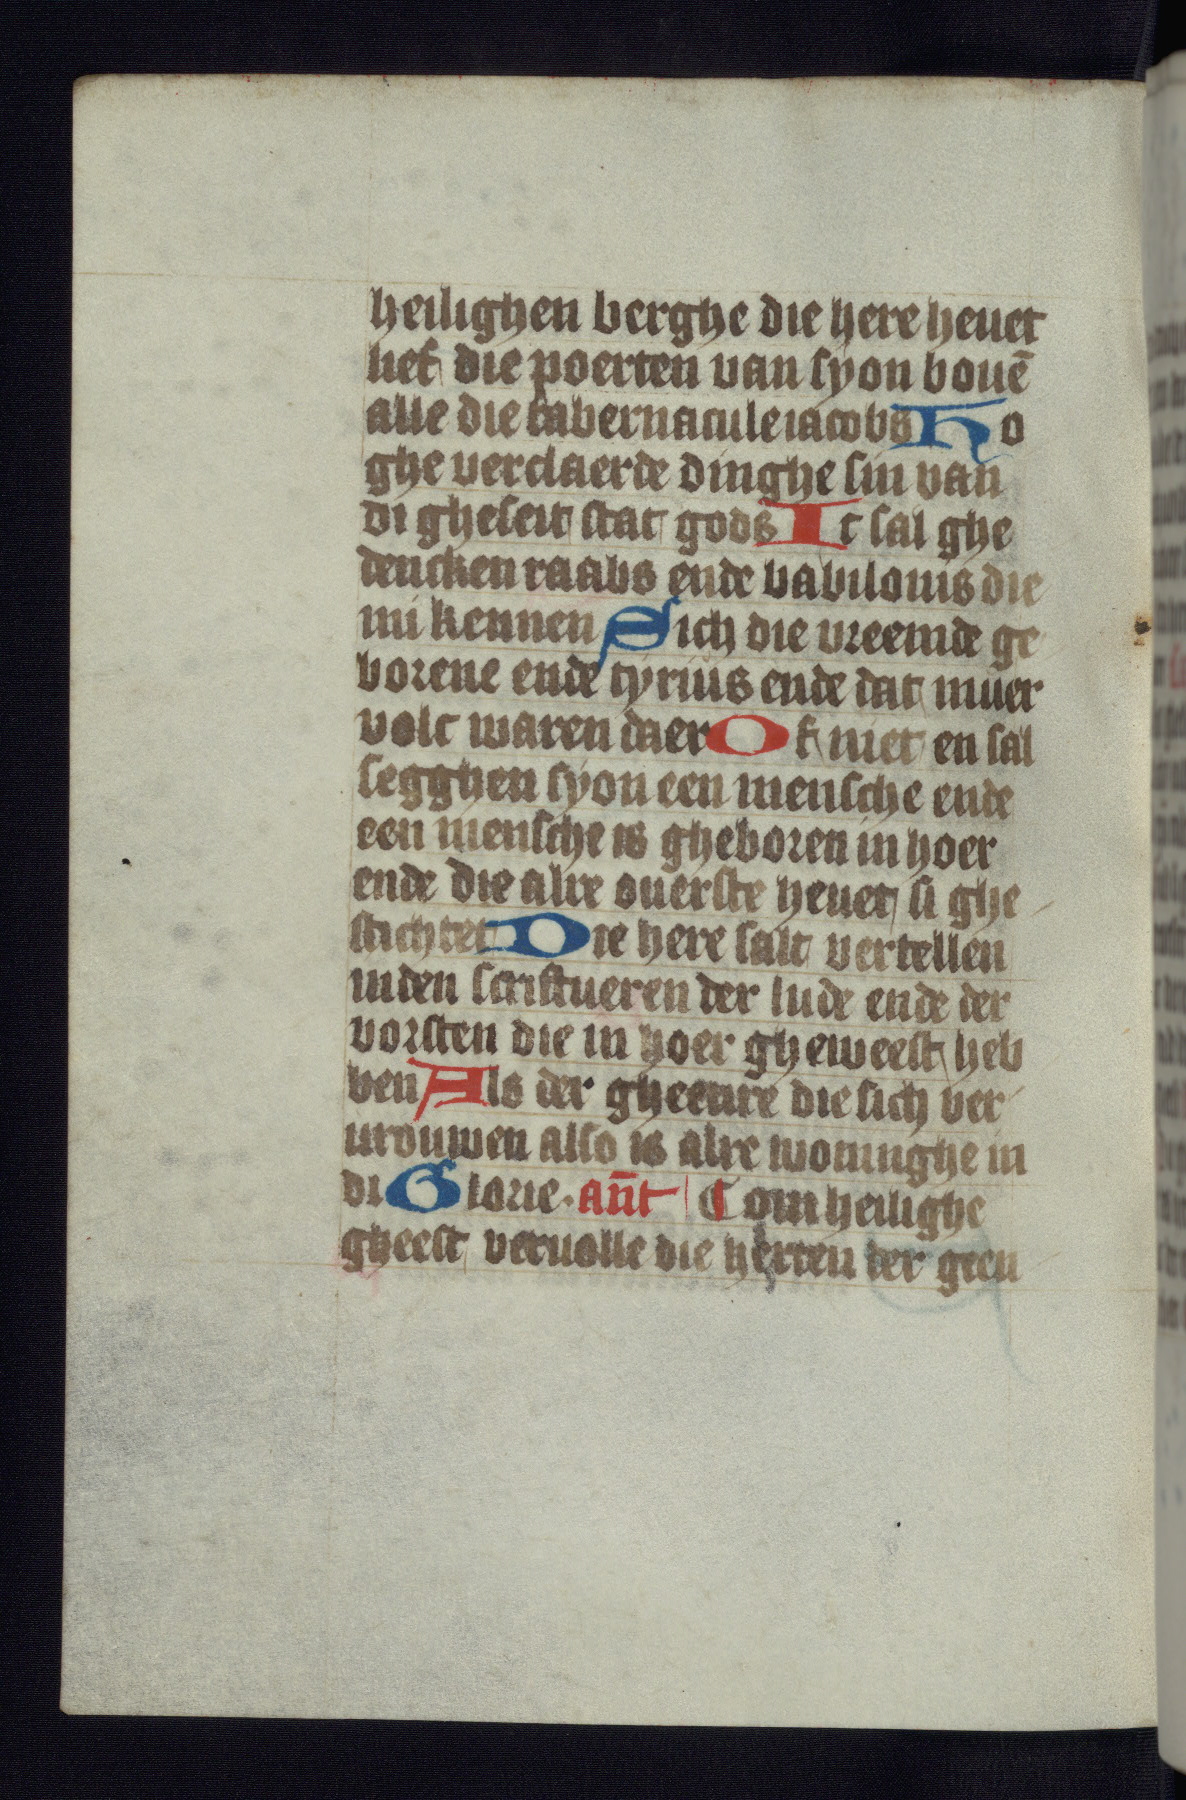 heilighen berghe die here heuet
lief die poerten van syon bouē
alle die tabernacule iacobs Ho
ghe verclaerde dinghe sin van
di gheseit stat gods Ic sal ghe
dencken raabs ende babilonis die
mi kennen Sich die vreemde ge
borene ende tyrius ende dat muer
volc waren daer Of niet en sal
segghen syon een mensche ende
een mensche is gheboren in hoer
ende die alre ouerste heuet si ghe
stichtet Die here salt vertellen
inden scriftueren der lude ende der
vorsten die in hoer gheweest heb
ben Als der gheenre die sich ver
urouwen also is alre woninghe in
di Glorie. an̄t Com heilighe
gheest veruolle die herten der geen